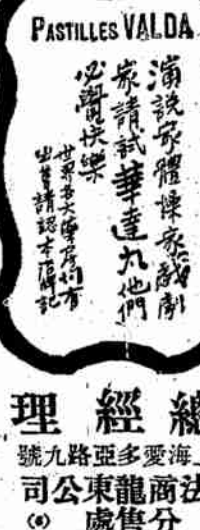 PASTILLES VALDA
演說家體操家戲劇
家請試華達丸他們
必覺快樂
世界各大藥房均有
出售請認本居牌記
總經理
上海愛多亞路九號
法商龍東公司
分售處